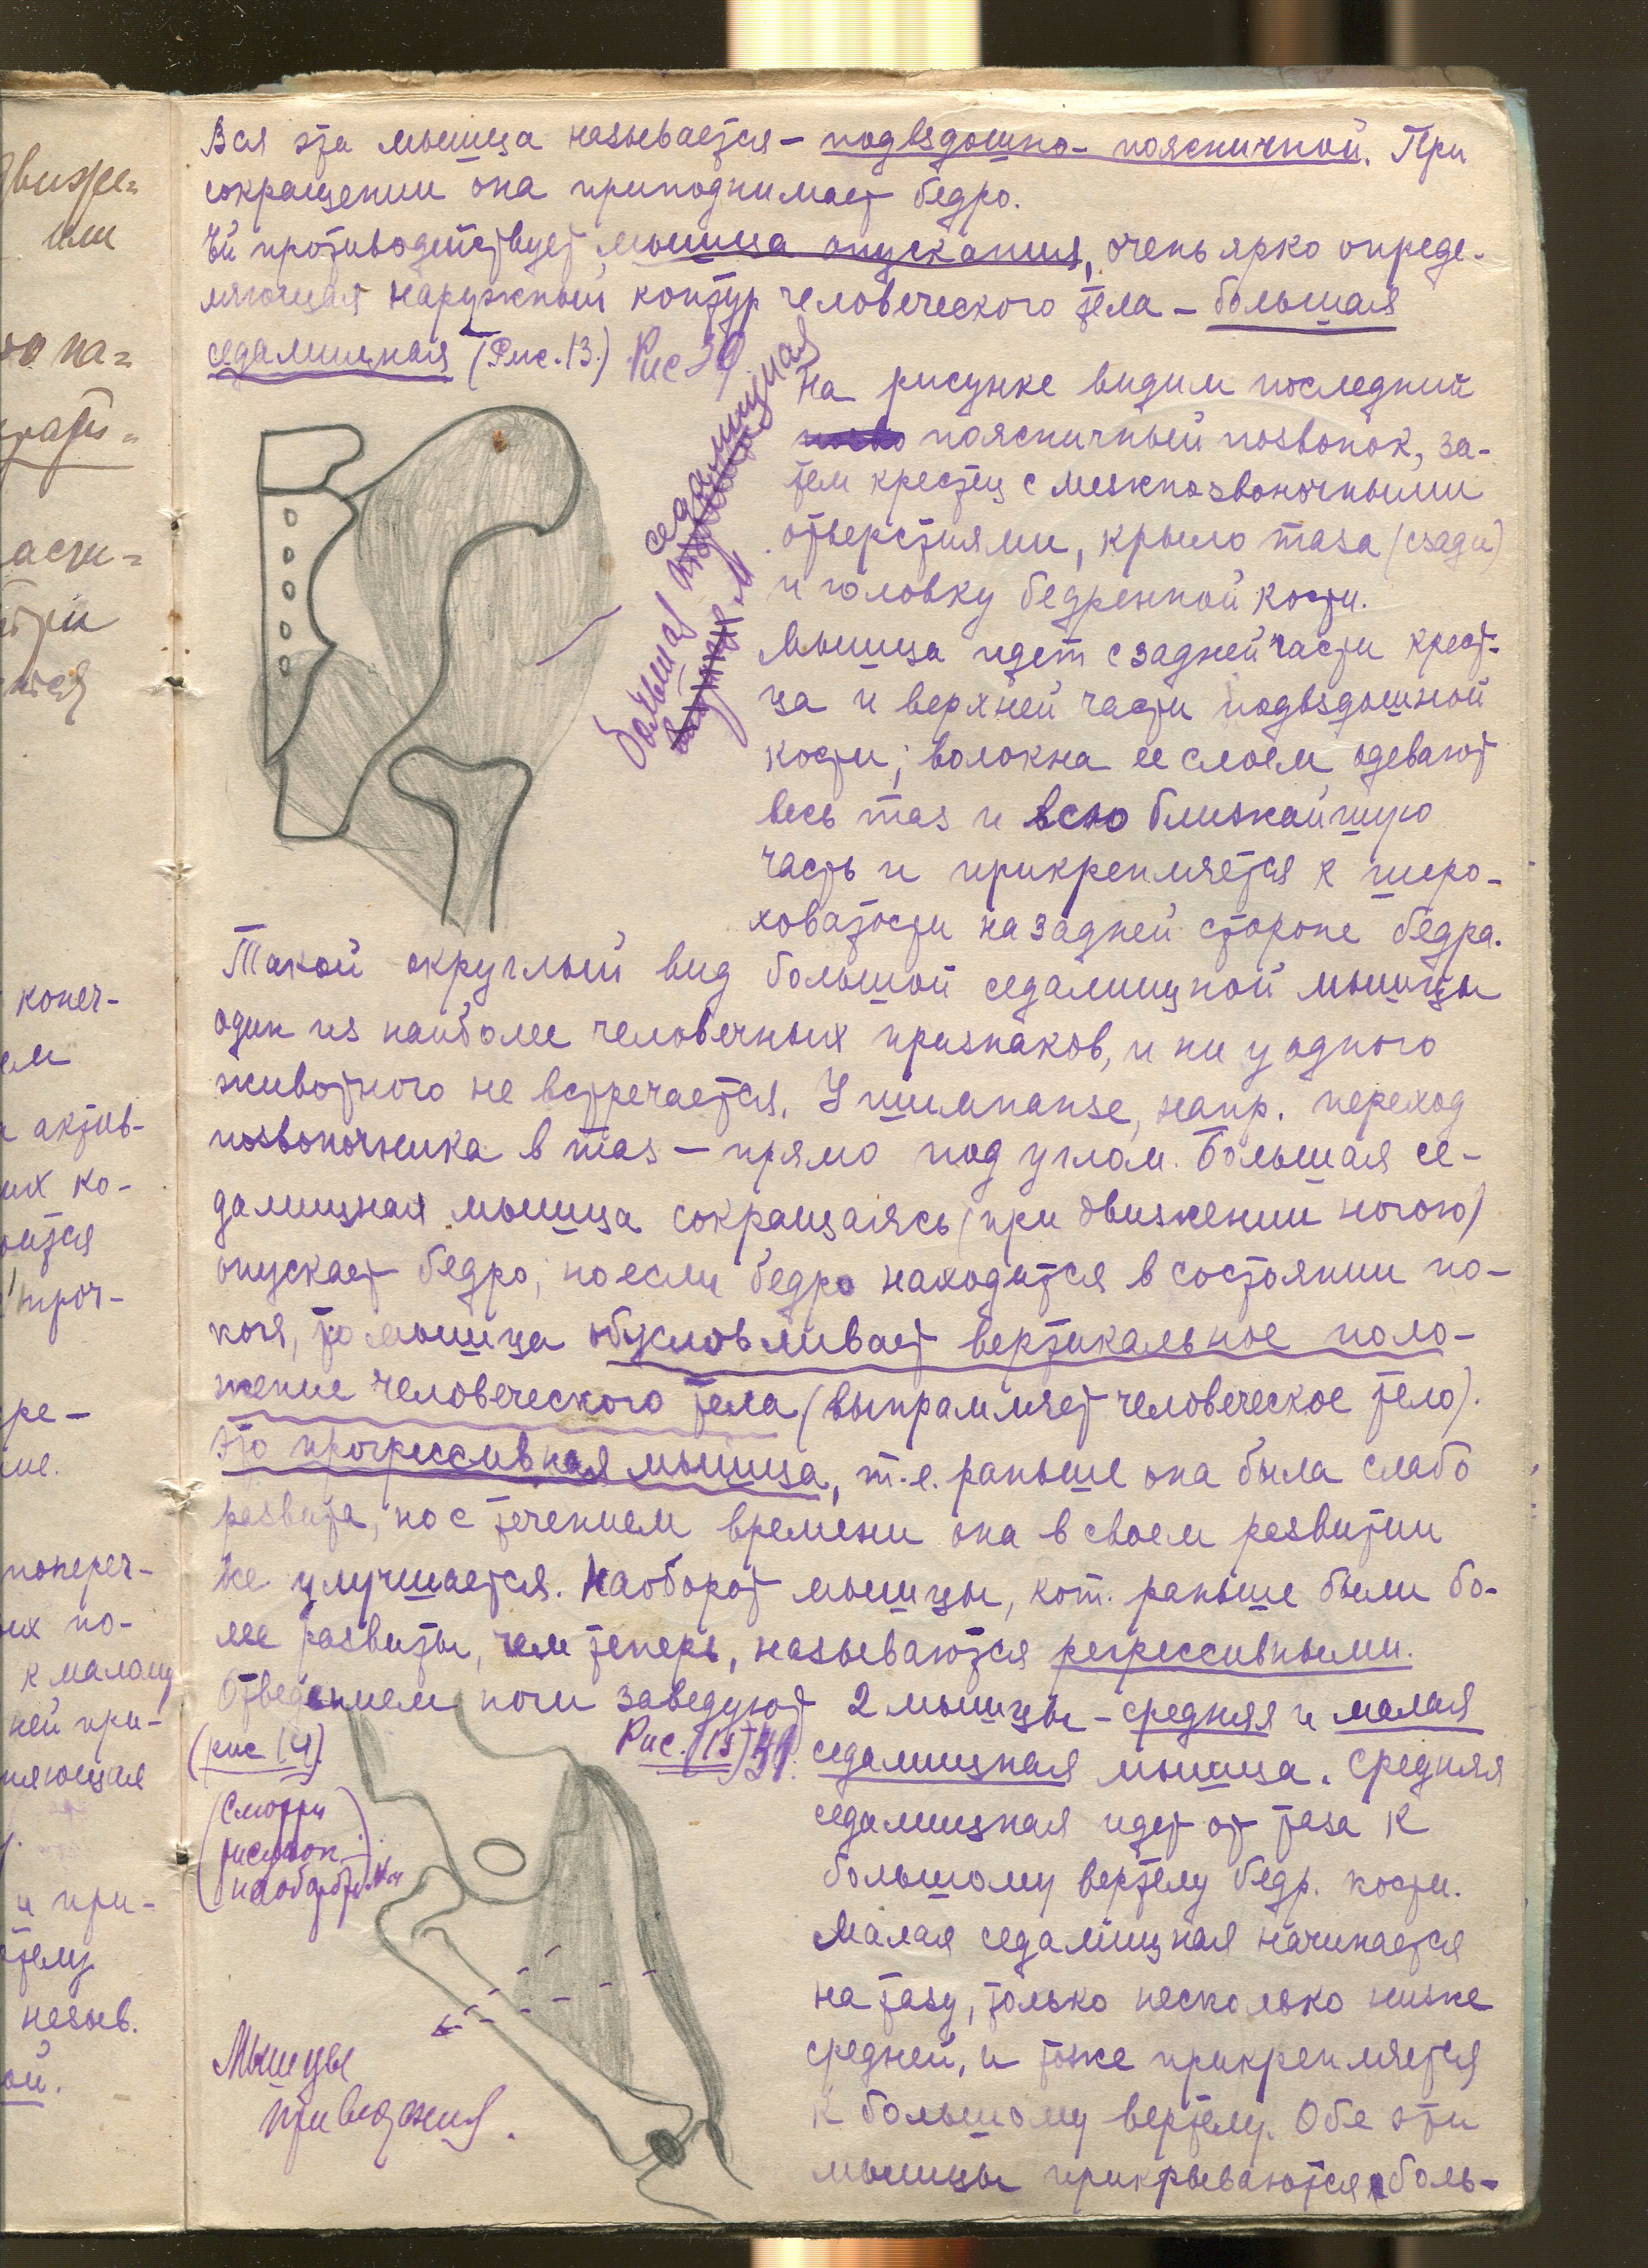 движе=
или
но на=
крати=
асти=
конеч-
ем
актив-
их ко-
оится
ре-
ие.
попереч-
их по-
к малому
ней при-
няющая
и при-
телу
назыв.
ой.
Вся эта мышца называется – подвздошно-поясничной. При
сокращении она приподнимает бедро.
Ей противодействует мышца опускания, очень ярко опреде-
ляющая наружный контур человеческого тела – большая
седалищная (Рис. 13.) Рис 39
большая седалищная
На рисунке видим последний
поясничный позвонок, за-
тем крестец с межпозвоночными
отверстиями, крыло таза (сзади)
и головку бедренной кости.
Мышца идет с задней части крест-
ца и верхней части подвздошной
кости; волокна ее слоем одевают
весь таз и всю ближайшую
часть и прикрепляется к шеро-
ховатости на задней стороне бедра.
Такой округлый вид большой седалищной мышцы
один из наиболее человечных признаков, и ни у одного
животного не встречается. У шимпанзе, напр. переход
позвоночника в таз – прямо под углом. Большая се-
далищная мышца сокращаясь (при движении ногою)
опускает бедро; но если бедро находится в состоянии по-
коя, то мышца обусловливает вертикальное поло-
жение человеческого тела (выпрямляет человеческое тело).
Это прогрессивная мышца, т.е. раньше она была слабо
развита, но с течением времени она в своем развитии
же улучшается. Наоборот мышцы, кот. раньше были бо-
лее развиты, чем теперь, называются регрессивными.
Отведением ноги заведуют 2 мышцы – средняя и малая
(рис 14).
Рис. (15) 41.
седалищная мышца. Средняя
(Смотри
рисунок
наоборот)
седалищная идет от таза к
большому вертелу бедр. кости.
Малая седалищная начинается
на тазу, только несколько ниже
средней, и тоже прикрепляется
к большому вертелу. Обе эти
мышцы прикрываются боль-
Мышцы
приведения.